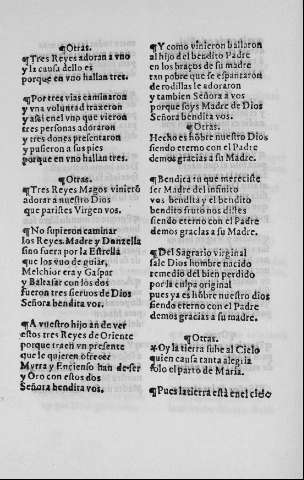 ¶Otras.
¶Tres Reyes adoran a vno
y la causa dello es
porque en vno hallan tres.
¶Por tres vias caminaron
y vna voluntad traxeron
y assi en el vno que vieron
tres personas adoraron
y tres dones presentaron
y pusieron a sus pies
porque en vno hallan tres.
¶Otras.
¶Tres Reyes Magos vinierõ
adorar a nuestro Dios
que paristes Virgen vos.
¶No supieron caminar
los Reyes. Madre y Donzella
sino fuera por la Estrella
que los vuo de guiar,
Melchior era y Gaspar
y Baltasar con los dos
fueron tres sieruos de Dios
Señora bendita vos.
¶A vuestro hijo an de ver
estos tres Reyes de Oriente
porque traen vn presente
que le quieren ofrecer
Myrra y Encienso han de ser
y Oro con estos dos
Señora bendita vos.
¶Y como vinieron hallaron
al hijo del bendito Padre
en los braços de su madre
tan pobre que se espantaron
de rodillas le adoraron
y tambien Señora a vos
porque soys Madre de Dios
Señora bendita vos.
¶Otras.
Hecho es hõbre nuestro Dios
siendo eterno con el Padre
demos gracias a su Madre.
¶Bendita tu que mereciste
ser Madre del infinito
vos bendita y el bendito
bendito fruto nos distes
siendo eterno con el Padre
demos gracias a su Madre.
¶Del Sagrario virginal
sale Dios hombre nacido
remedio del bien perdido
por la culpa original
pues ya es hõbre nuestro dios
siendo eterno con el Padre
demos gracias a su madre.
¶Otras.
Oy la tierra sube al Cielo
quien causa tanta alegria
solo el parto de Maria.
¶Pues la tierra está en el cielo